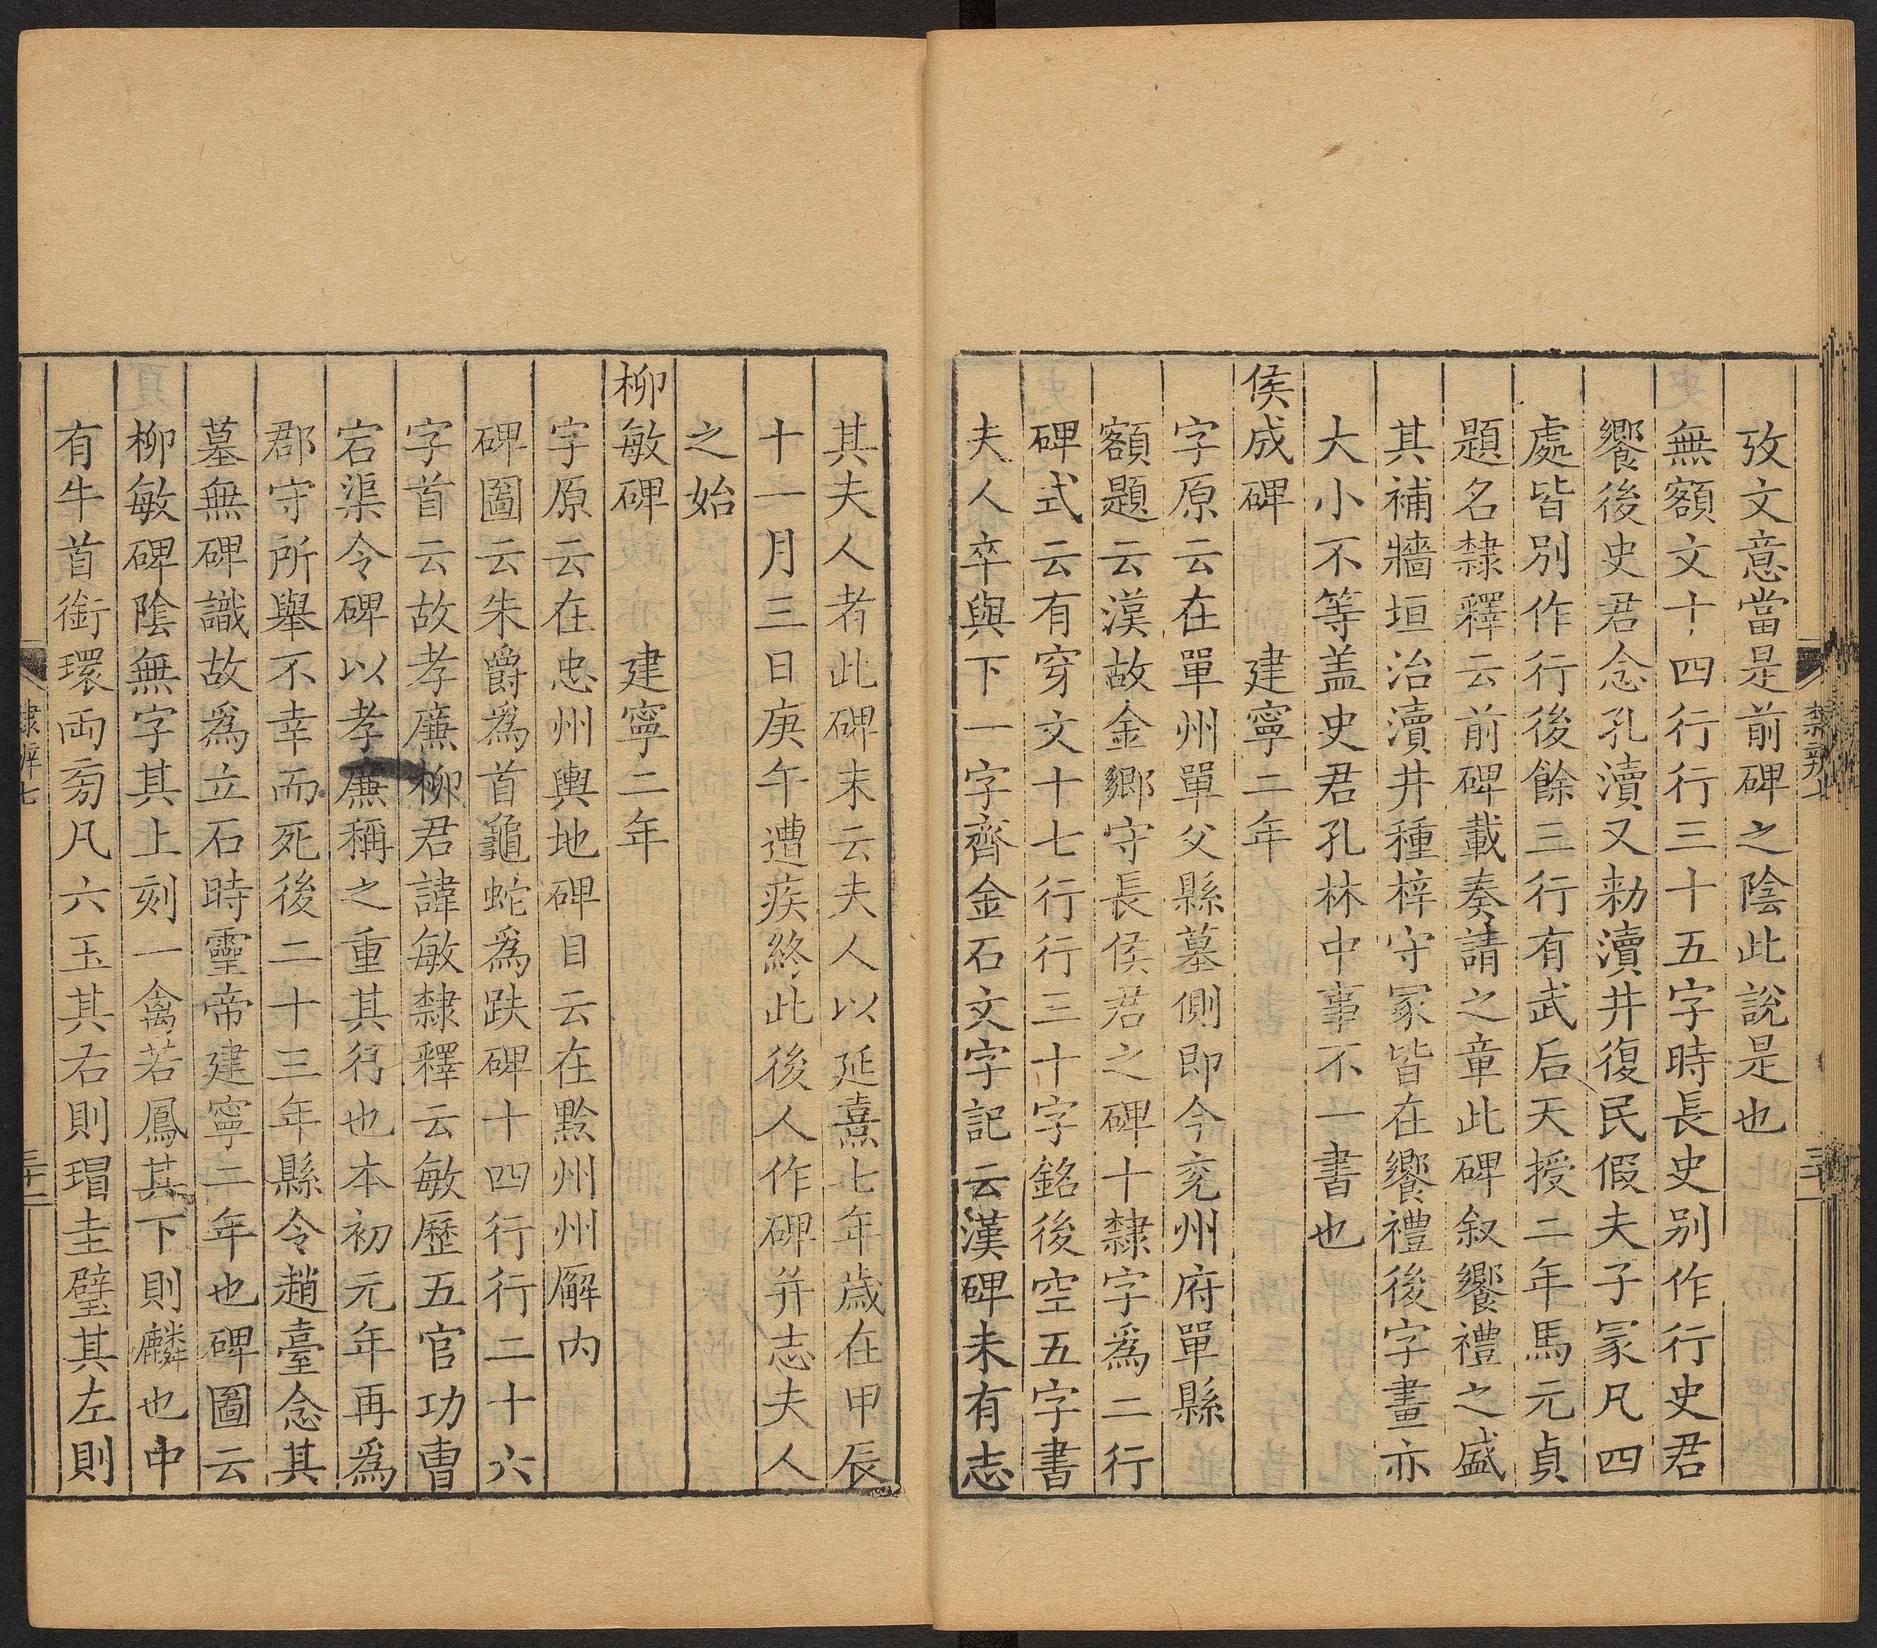 攷文意當是前碑之陰此說是也
無額文十四行行三十五字時長史別作行史君
饗後史君念孔瀆又勑瀆井復民假夫子冢凡四
處皆別作行後餘三行有武后天授二年馬元貞
題名隸釋云前碑載奏請之章此碑叙饗禮之盛
其補牆垣治瀆井種梓守冢皆在饗禮後字畫亦
大小不等盖史君孔林中事不一書也
侯成碑　建寧二年
字原云在單州單父縣墓側即今兖州府單縣
額題云漢故金鄉守長侯君之碑十隸字爲二行
碑式云有穿文十七行行三十字銘後空五字書
夫人卒與下一字齊金石文字記云漢碑未有志
其夫人者此碑末云夫人以延熹七年歲在甲辰
十一月三日庚午遭疾終此後人作碑并志夫人
之始
柳敏碑　建寧二年
字原云在忠州輿地碑目云在黔州州廨内
碑圖云朱爵爲首龜蛇爲趺碑十四行行二十六
字首云故孝廉柳君諱敏隸釋云敏歷五官功曹
宕渠令碑以孝廉稱之重其行也本初元年再爲
郡守所舉不幸而死後二十三年縣令趙臺念其
墓無碑識故爲立石時靈帝建寧二年也碑圖云
柳敏碑陰無字其上刻一禽若鳳其下則麟也中
有牛首銜環両旁凡六玉其右則瑁圭璧其左則
隸辨七
三十一